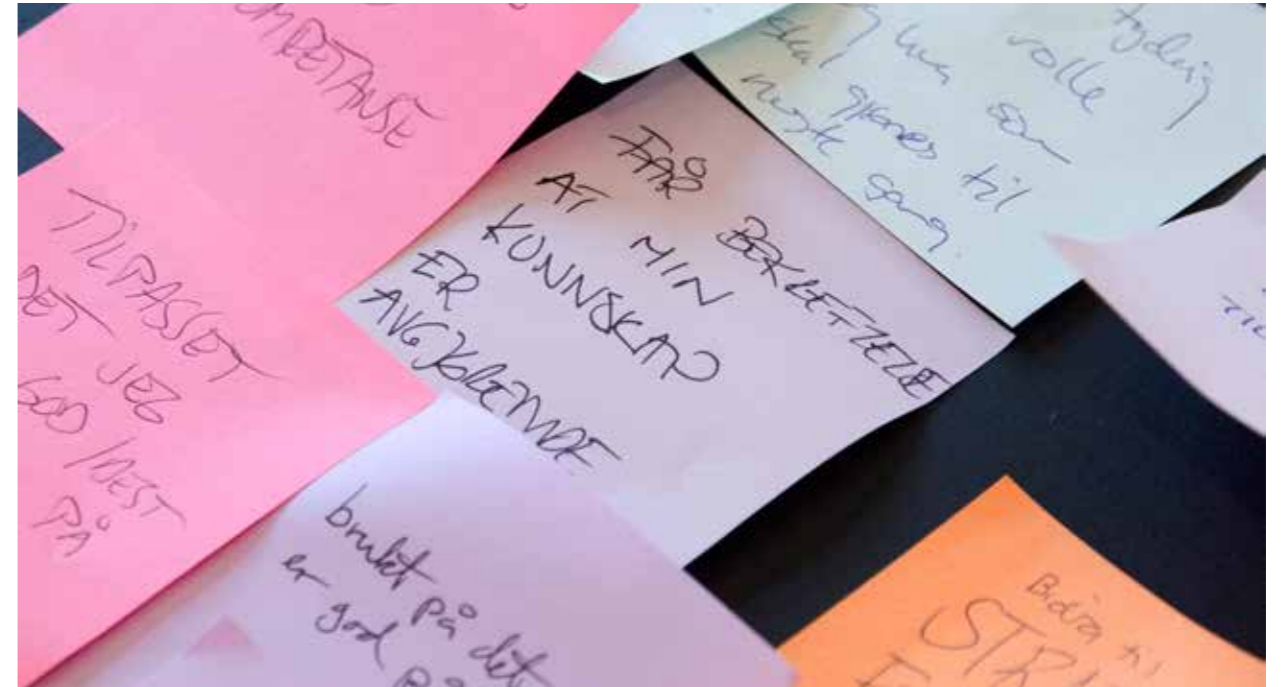 TILPASSET
DET JEG
GOD / MEST
PÅ
FÅR BEKREFTELSE
AT MIN
KUNNSKAP
ER
AVGJØRENDE
rolle
og hva som
skal gjøres til
neste gang.
brukt på det
er god på
Bidra til